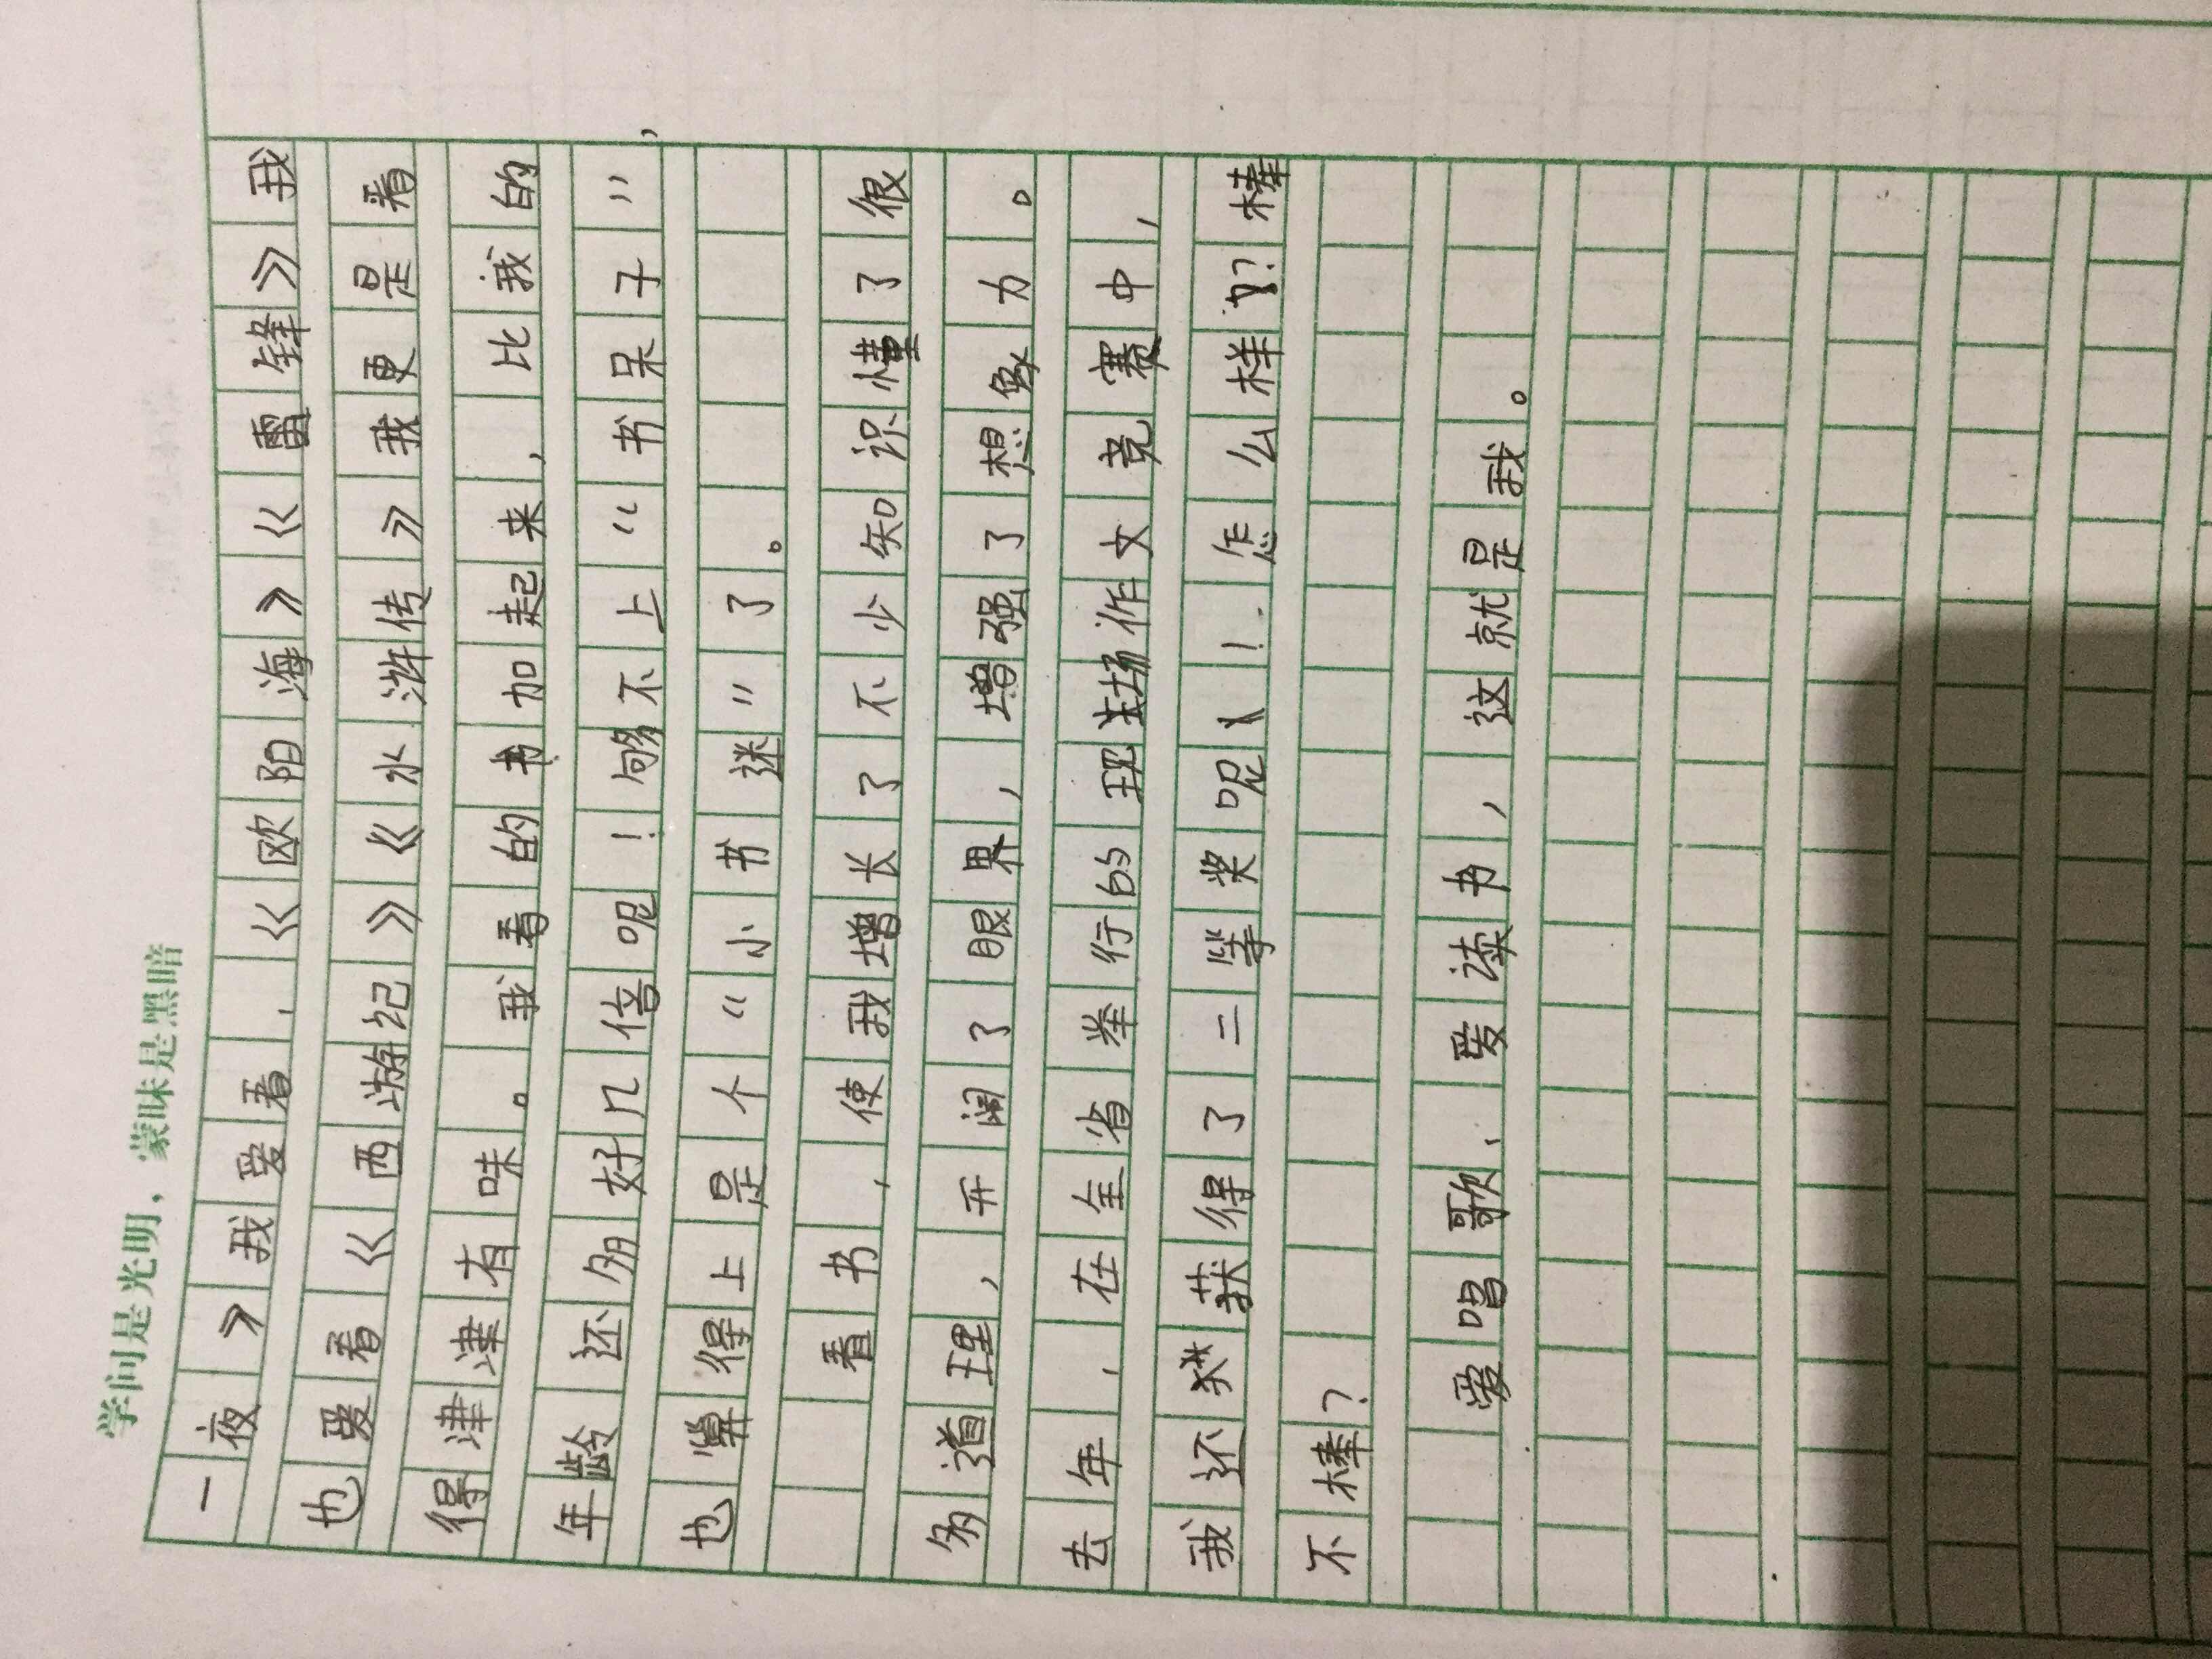 学问是光明，蒙昧是黑暗
一夜》我爱看，《欧阳海》《雷锋》我
也爱看《西游记》《水浒传》我更是看
得津津有味。我看的书加起来，比我的
年龄还多好几倍呢！够不上“书呆子”，
也算得上是个“小书迷”了。
看书，使我增长了不少知识懂了很
多道理，开阔了眼界，增强了想象力。
去年，在全省举行的现场作文竞赛中，
我还获得了二等奖呢！怎么样？棒
不棒？
爱唱歌、爱读书，这就是我。